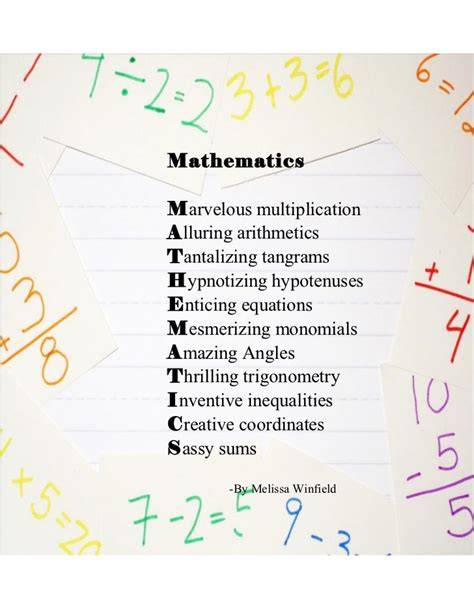 4÷2=2
3+3=6
6=12
Mathematics
Marvelous multiplication
Alluring arithmetics
Tantalizing tangrams
Hypnotizing hypotenuses
Enticing equations
Mesmerizing monomials
Amazing Angles
Thrilling trigonometry
Inventive inequalities
Creative coordinates
Sassy sums
-By Melissa Winfield
+ 1
4
03/8
10
- 5
5
+5=20
7-2=5
9-3